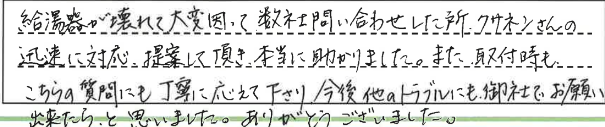 給湯器が壊れて大変困って数社問い合わせした所、クサネンさんの
迅速に対応、提案して頂き、本当に助かりました。また、取付時も、
こちらの質問にも丁寧に応えて下さり、今後他のトラブルにも、御社でお願い
出来たら、と思いました。ありがとうございました。